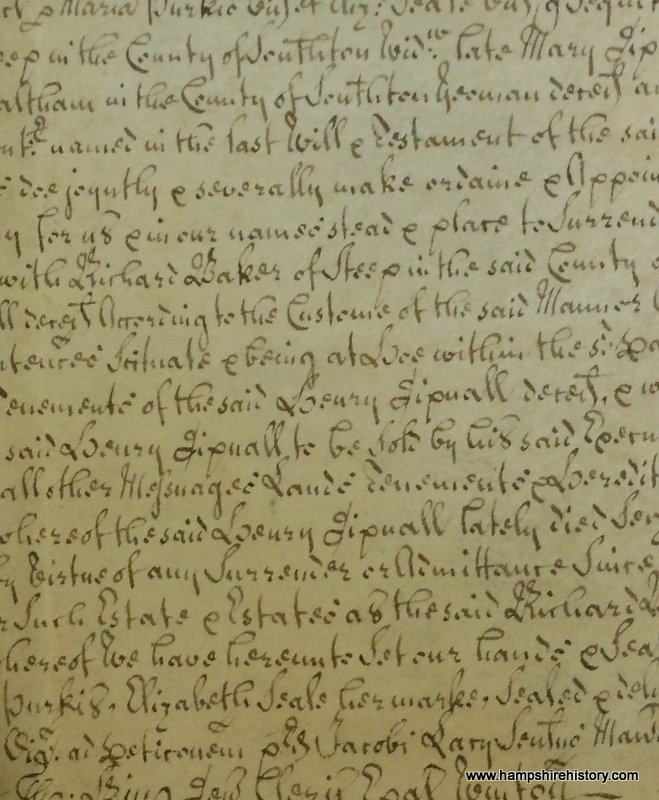 Maria Purkis
eep in the County of Southton Widw late Mary Jip
altham in the County of Southton Yeoman decēd an
named in the last Will & Testament of the sai
doe joyntly & severally make ordaine & Appoin
y for us & in our names stead & place to Surrend
with Richard Baker of Steep in the said County o
ll decēd According to the Custome of the said Mannor
Scituate & being at Hoe within the sd
Tenements of the said Henry Jipnall decēd, & w
said Henry Jipnall to be sold by his said Execu
all other Messuages Lands Tenements & Heredit
whereof the said Henry Jipnall lately died Seiz
by Virtue of any Surrender or Admittance Since
r Such Estate & Estates as the said Richard B
hereof We have hereunto Set our hands & Sea
Purkis, Elizabeth Seale her marke, Sealed & deliv
ad peticonem Jacobi Lacy
www.hampshirehistory.com